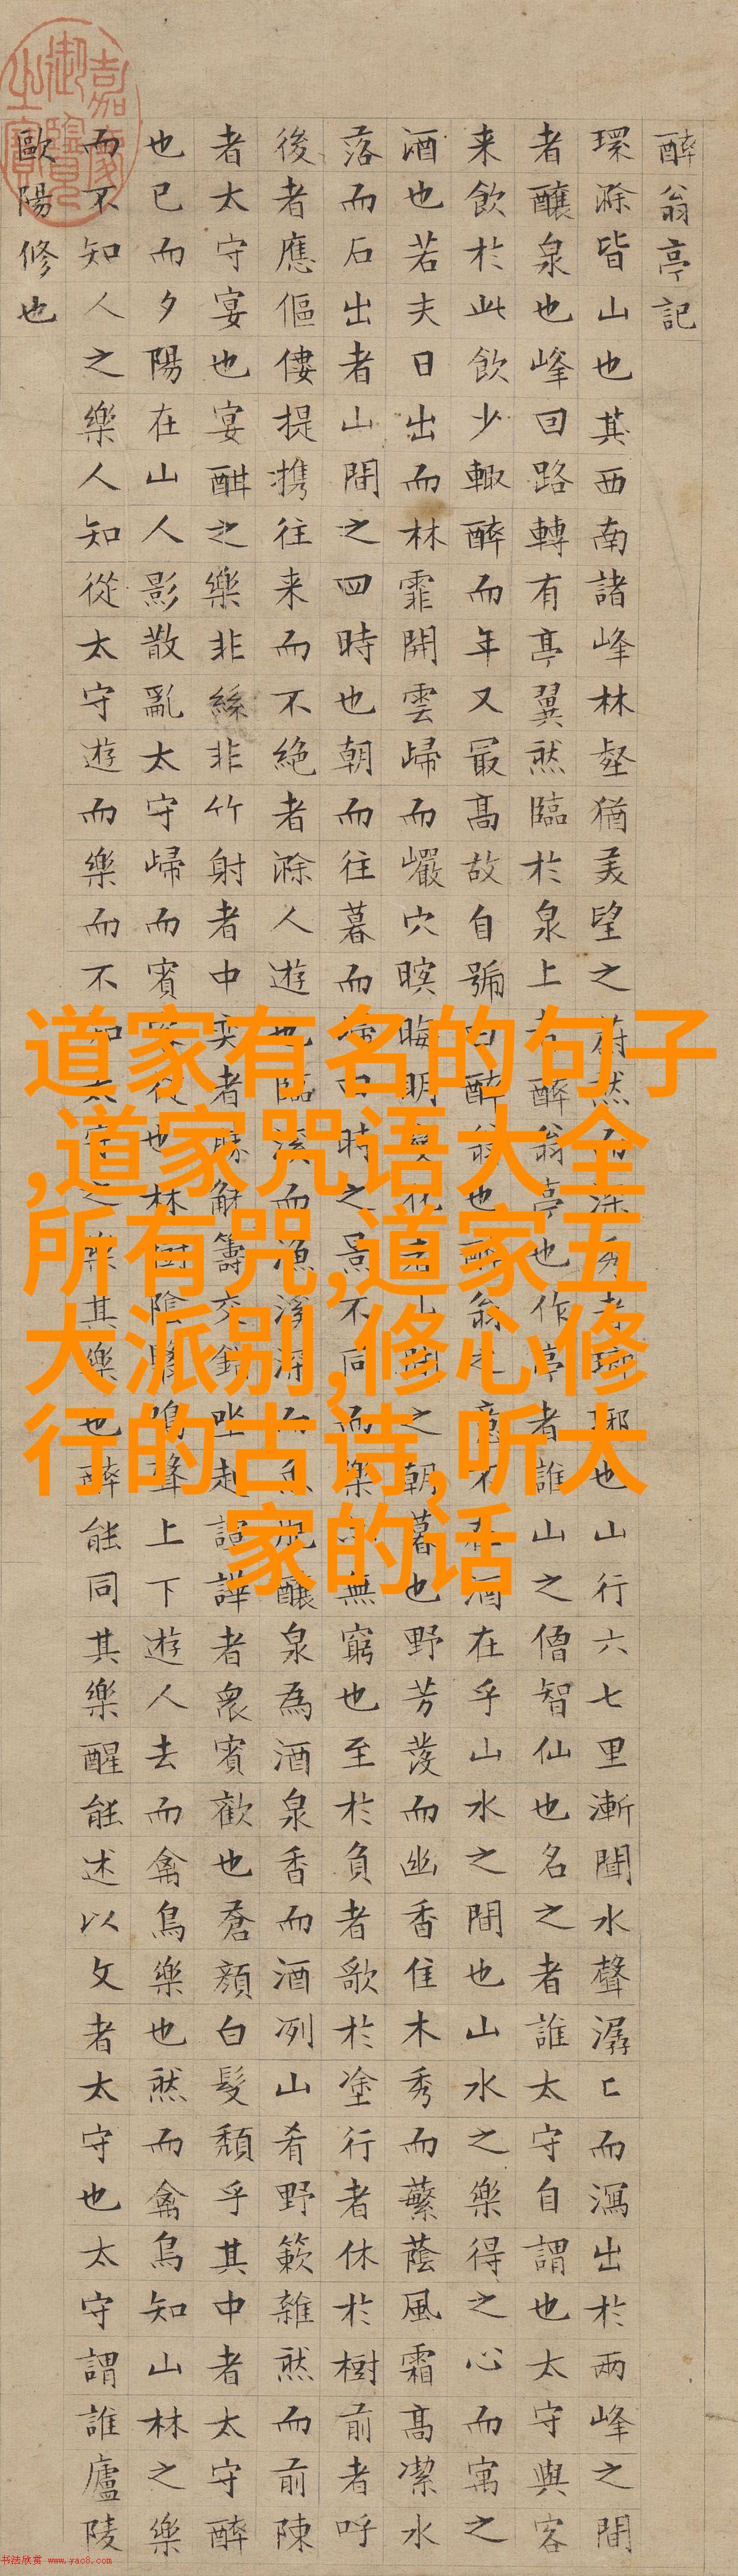 醉翁亭記
環滁皆山也其西南諸峰林壑猶美望之蔚然而深秀者瑯琊也山行六七里漸聞水聲潺匕而瀉出於兩峰之間
者釀泉也峰回路轉有亭翼然臨於泉上者醉翁亭也作亭者誰山之僧智仙也名之者誰太守自謂也太守與客
来飲於此飲少輒醉而年又最高故自號曰醉翁也醉翁之意不在酒在乎山水之間也山水之樂得之心而寓之
酒也若夫日出而林霏開雲歸而巖穴暝晦明變化者山間之朝暮也野芳發而幽香佳木秀而繁蔭風霜高潔水
落而石出者山間之四時也朝而往暮而歸四時之景不同而樂亦無窮也至於負者歌於塗行者休於樹前者呼
後者應傴僂提携往来而不絕者滁人遊也臨溪而漁溪深而魚肥釀泉為酒泉香而酒冽山肴野簌雜然而前陳
者太守宴也宴酣之樂非絲非竹射者中奕者勝觥籌交錯坐起諠譁者衆賓歡也蒼顏白髮頹乎其中者太守醉
也已而夕陽在山人影散亂太守歸而賓客從也林樹陰翳鳴聲上下遊人去而禽鳥樂也然而禽鳥知山林之樂
而不知人之樂人知從太守遊而樂而不知太守之樂其樂也醉能同其樂醒能述以文者太守也太守謂誰廬陵
歐陽修也
嘉慶御覽之寶
道家有名的句子
,道家咒语大全
所有咒,道家五
大派别,修心修
行的古诗,听大
家的话
书法欣赏 www.yac8.com